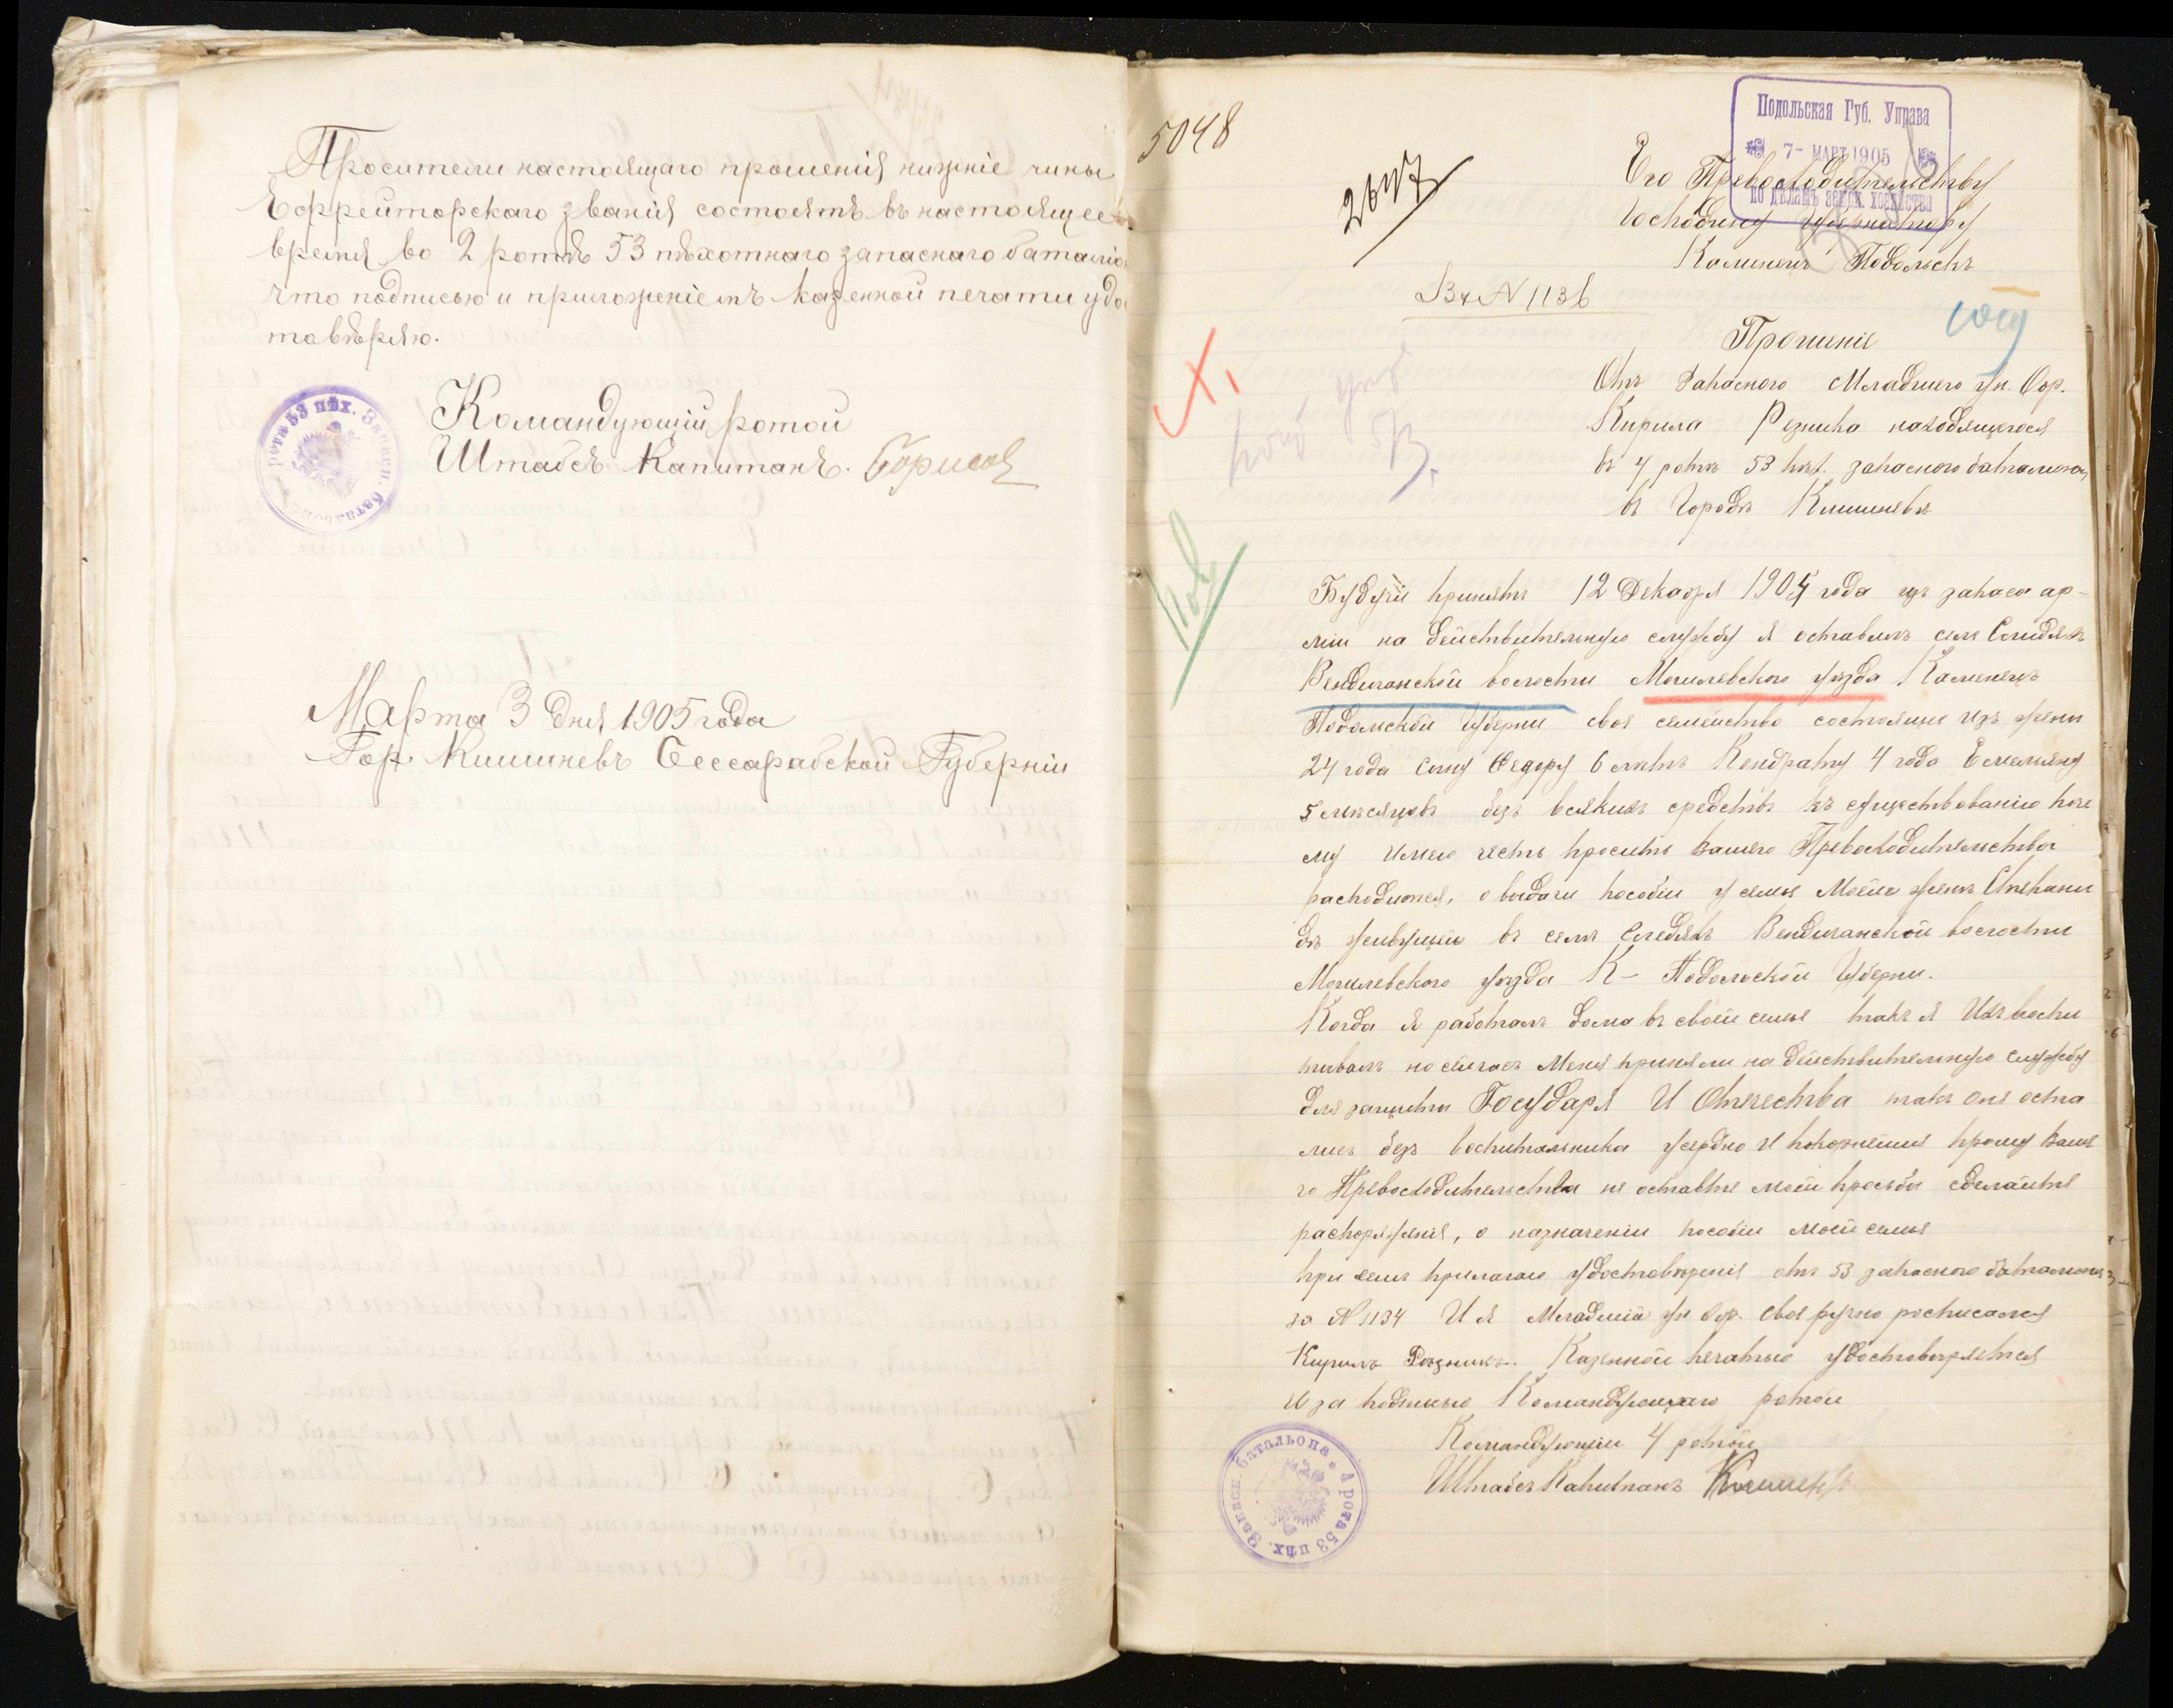 Просители настоящаго прошенія нижніе чины
Ефрейторскаго званія состоятъ въ настоящее
время во 2 ротѣ 53 пѣхотнаго запаснаго баталіо
что подписью и приложеніемъ казенной печати удо
товѣряю.
рота 53 пѣх. Запасн. батальона
Командующій ротой
Штабсъ Капитанъ. Борисов
Марта 3 дня 1905 года
Гор. Кишиневъ Бессарабской Губерніи
5048
2647
Подольская Губ. Управа
7- МАРТ 1905
по дѣламъ земск. хозяйства
Его Превосходительству
Господину Губернатору
Каминецъ Подольскъ
Вх № 1136
Прошеніе
Отъ Запасного Младшего ун. Офр.
Кирила Резника находящегося
въ 4 ротѣ 53 пѣх. запасного баталиона
въ Городѣ Кишиневѣ
Будучи принятъ 12 Декабря 1904 года изъ запаса ар-
міи на действительную службу я оставилъ селе
Вендичанской волости Могилевского уезда Каминецъ
Подольской Губерни своя семейство состоящие изъ жены
24 года сину Федору 6 летъ Кондрату 4 года Емеляну
5 месяцовъ безъ всякихъ средствъ къ существованию поче
му имею честь просить Вашего Превосходительства
о выдачи пособіи семье Моеи жене Степани
де живущеи въ селе Вендичанской волости
Могилевского уезда К- Подольской Губерни.
Когда я работалъ дома въ своеи семье такъ я Ихъ воспи
тивалъ но сейчасъ Меня приняли на действительную службу
для защити Государя И Отечества такъ оне оста
лись безъ воспитальника усердно и покорнейше прошу Ваше
го Превосходительства не оставте моеи просьби сделайте
распоряжения, о назначеніи пособіи моеи семье
при семъ прилагаю удостоверения отъ 53 запасного баталиона
за № 1134 И я Младшій ун офр. своя ручно росписался
Кирилъ Резникъ. Казенной печатью удостоверяется
и за подписью Командующаго ротои
Командующіи 4 ротои
Штабсъ Капитанъ
4 рота 53 пѣх. Запасн. батальона